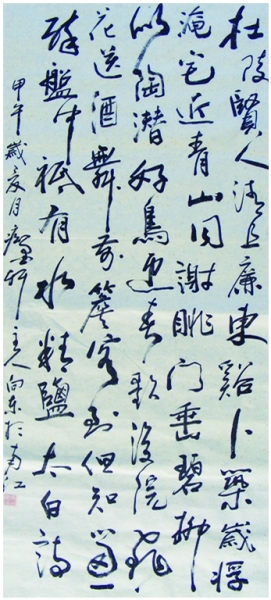 杜陵賢人清且廉東谿卜築歲將
淹宅近青山同謝朓門垂碧柳
似陶潛好鳥迎春歌後院飛
花送酒舞前簷客到但知留一
醉盤中祗有水精鹽太白詩
甲午歲夏月軒主人向東於江